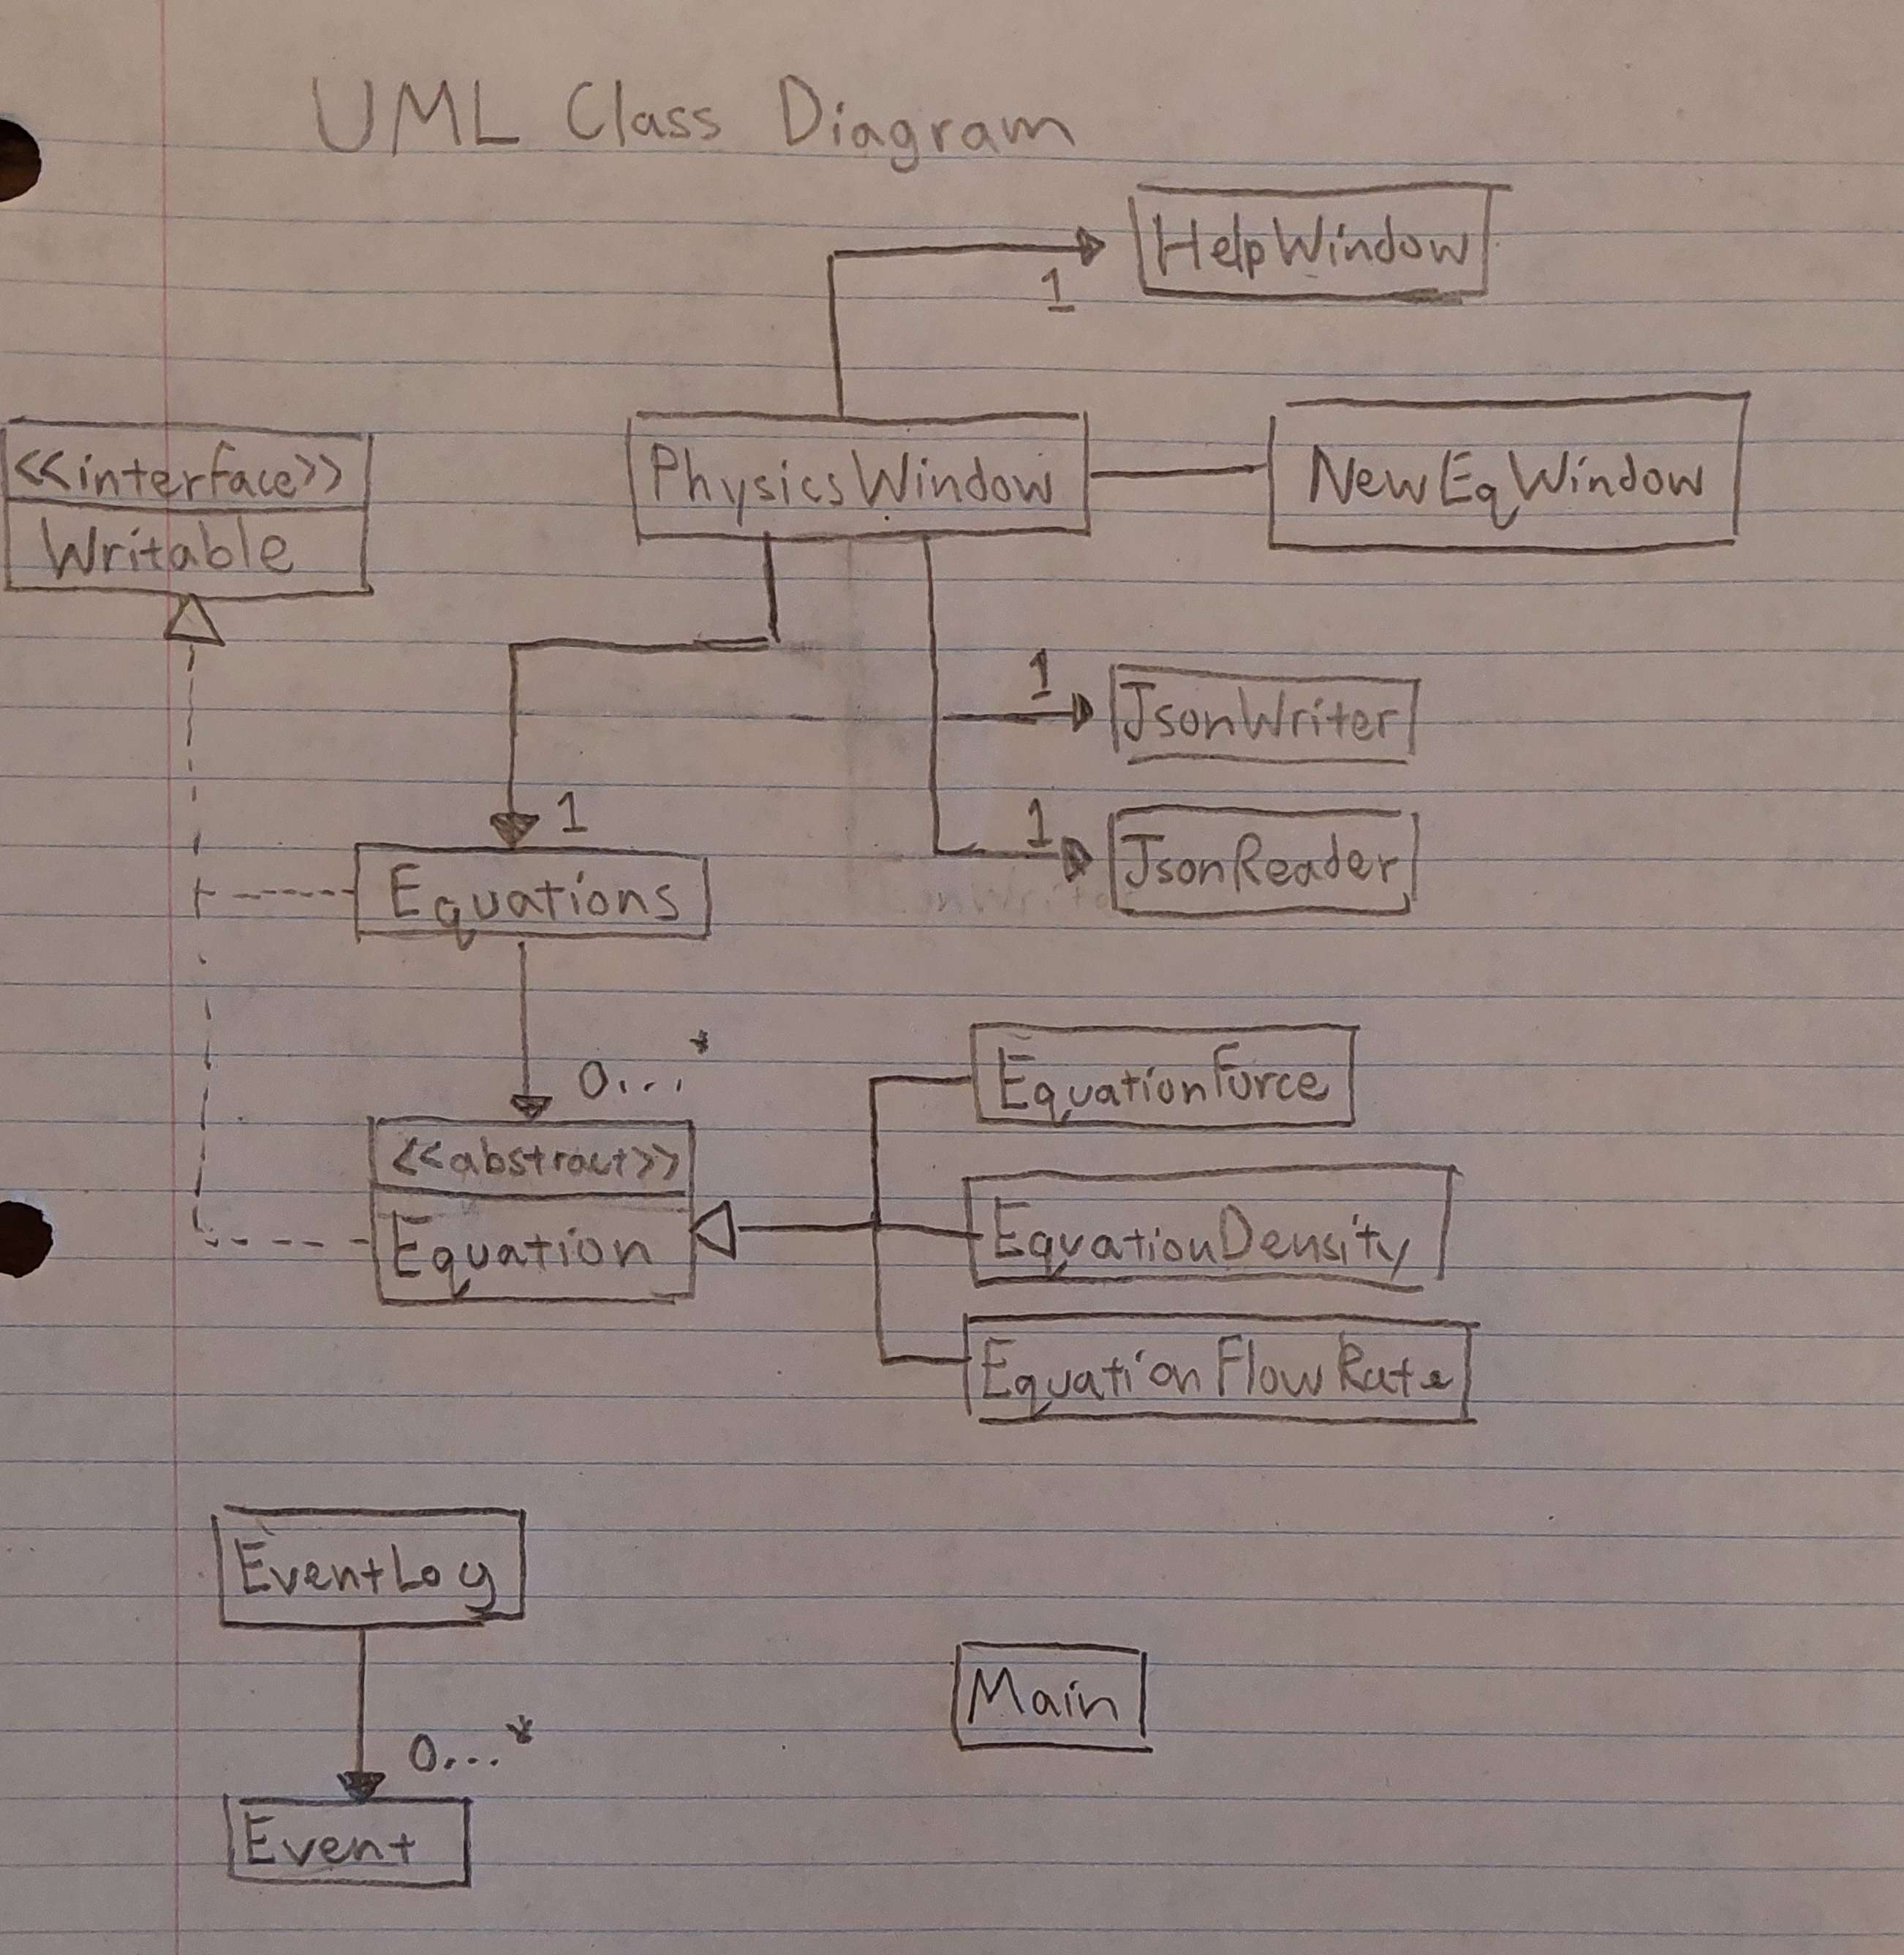 UML Class Diagram
HelpWindow
1
<<interface>>
Writable
PhysicsWindow
NewEqWindow
1
JsonWriter
1
1
JsonReader
Equations
0...*
<<abstract>>
Equation
EquationForce
EquationDensity
EquationFlowRate
EventLog
0...*
Event
Main